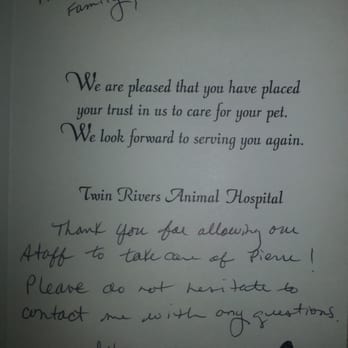 Family,
We are pleased that you have placed
your trust in us to care for your pet.
We look forward to serving you again.
Twin Rivers Animal Hospital
Thank you for allowing our
staff to take care of Pierre!
Please do not hesitate to
contact me with any questions.